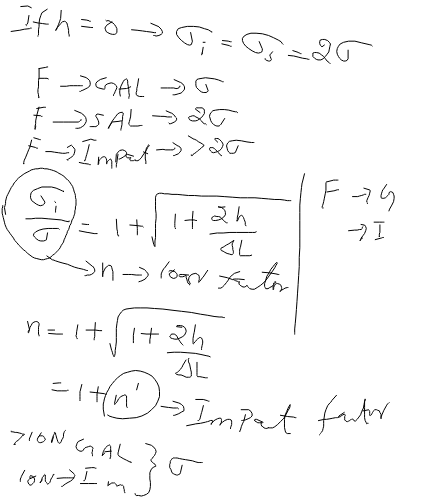 If h = 0 → σi = σs = 2σ
F → GAL → σ
F → SAL → 2σ
F → Impat → > 2σ
σi/σ = 1 + √(1 + 2h/ΔL)
→ n → loan factor
F → G
→ I
n = 1 + √(1 + 2h/ΔL)
= 1 + n' → Impat factor
>10N GAL
10N → Im } σ